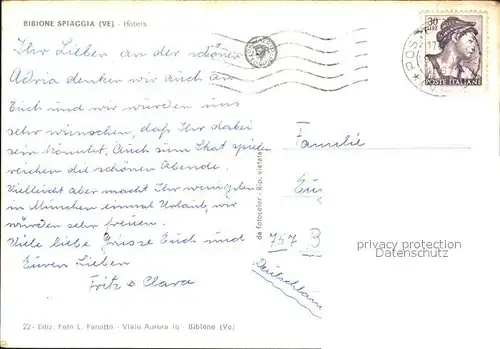 BIBIONE SPIAGGIA (VE) - Hotels
Ihr Lieben, an der schönen
Adria denken wir auch an
Euch und wir würden uns
sehr wünschen, daß Ihr dabei
sein könntet, Auch zum Skat spielen
reichen die schönen Abende.
Vielleicht aber macht Ihr wenigstens
in München einmal Urlaub, wir
würden sehr freuen.
Viele liebe Grüsse Euch und
Euren Lieben
Fritz & Clara
22 - Ediz. Foto L. Fanotto - Viale Aurora 16 - Bibione (Ve)
da fotocolor - Rip. vietata
30
LIRE
POSTE ITALIANE
Familie
Eug
757 B
Deutschlan
privacy protection
Datenschutz